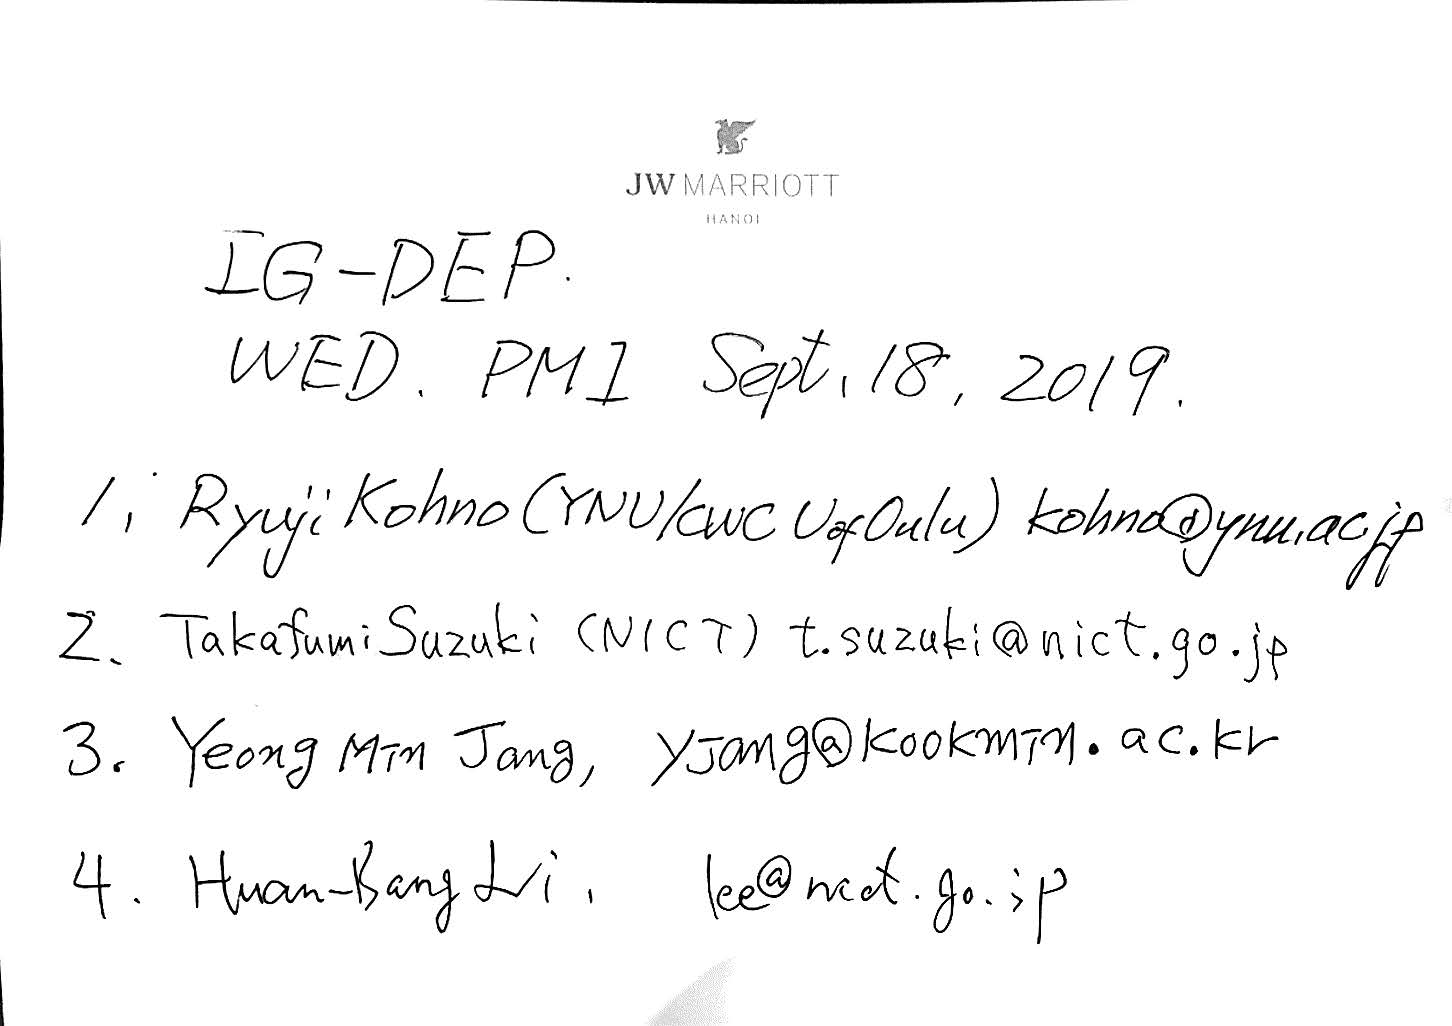 JW MARRIOTT
HANOI
IG-DEP.
WED. PM1 Sept. 18, 2019.
1. Ryuji Kohno (YNU/CWC U of Oulu) kohno@ynu.ac.jp
2. Takafumi Suzuki (NICT) t.suzuki@nict.go.jp
3. Yeong Min Jang, yjang@kookmin.ac.kr
4. Huan-Bang Li, lee@nict.go.jp